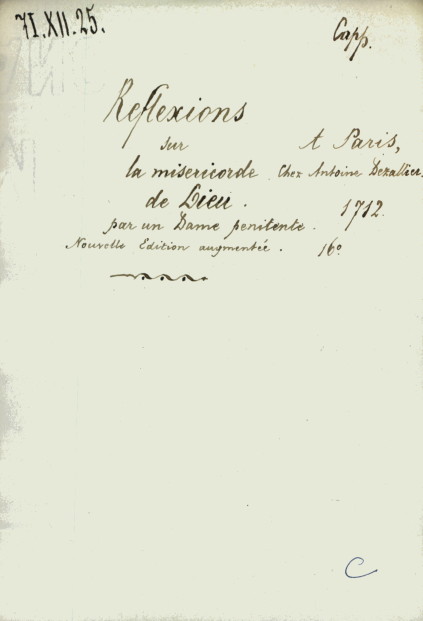 71.XII.25.
Capp.
Reflexions
sur
la misericorde
de Dieu.
par un Dame penitente.
Nouvelle Edition augmentée.
A Paris,
Chez Antoine Dezallier.
1712.
16º
C